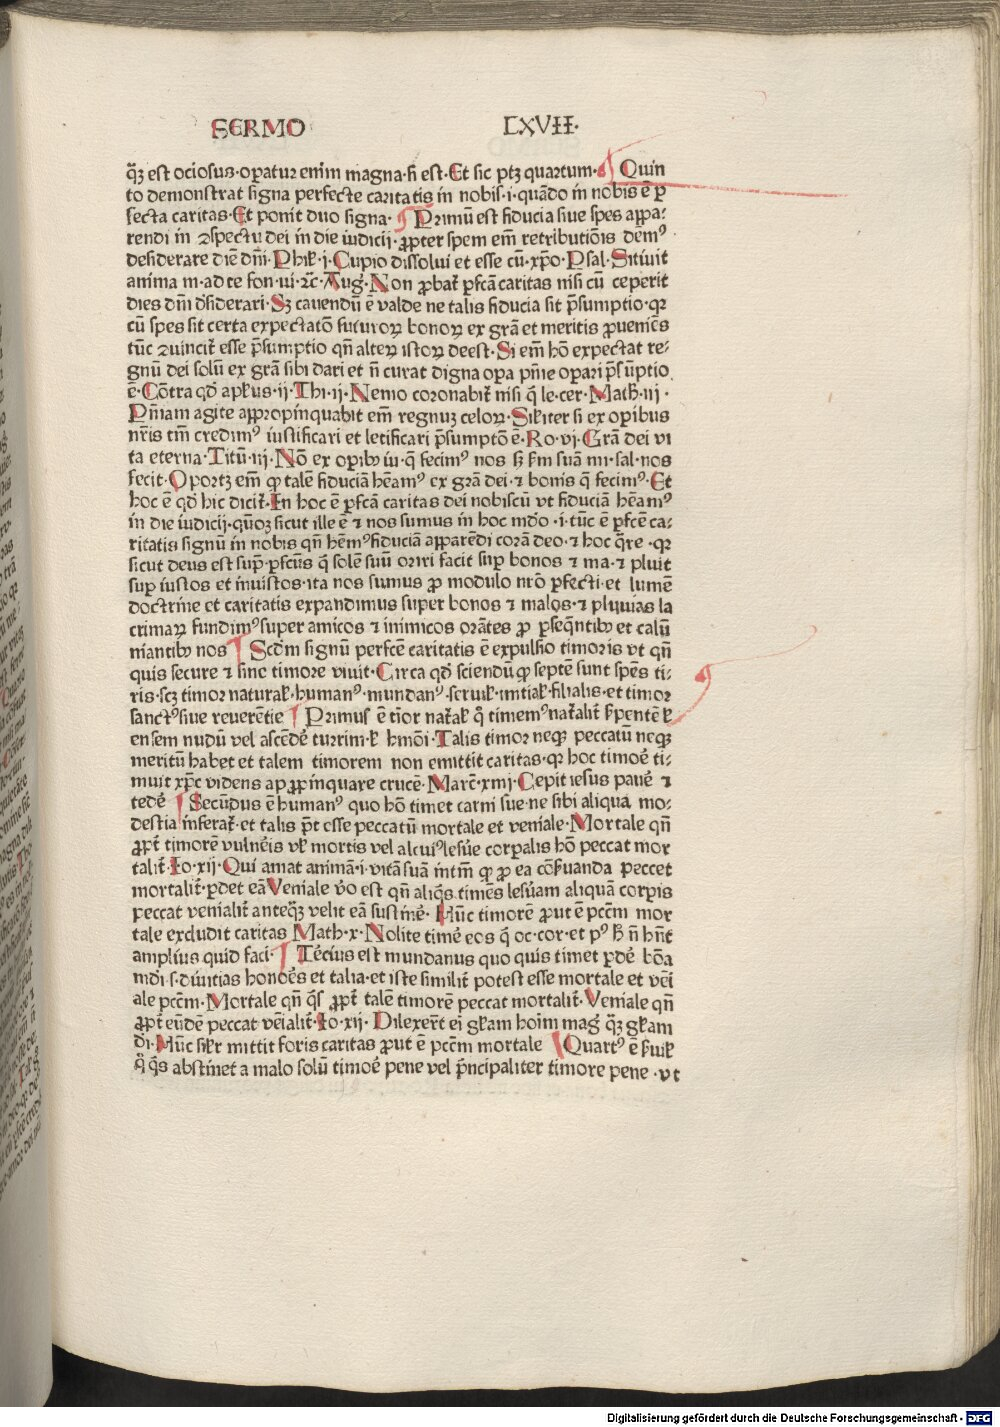 SERMO LXVII·
qȝ est ociosus·operatur enim magna·si est·Et sic ptȝ quartum· Quin
to demonstrat signa perfecte caritatis in nobis·i·quādo in nobis ē p̲
fecta caritas·Et ponit duo signa· Primū est fiducia siue spes appa⸗
rendi in ꝯspectu dei in die iudicij·ꝓpter spem em̄ retributiōis dēmꝰ
desiderare diē dn̄i·Phil̄·j·Cupio dissolui et esse cū·xp̄o·Psal·Sitiuit
anima m·ad te fon·ui·ꝛc̄·Auḡ·Non ꝓbat̄ p̲fcā caritas nisi cū ceperit
dies dn̄i dʼsiderari·Sȝ cauendū ē valde ne talis fiducia sit p̄sumptio·qꝛ
cū spes sit certa expectatō futuroꝝ bonoꝝ ex grā et meritis ꝓueniēs
tūc ꝯuincit̄ esse p̄sumptio qn̄ alteꝝ istoꝝ deest·Si em̄ hō expectat re⸗
gnū dei solū ex grā sibi dari et n̄ curat digna op̲a pn̄ie op̲ari p̄sūptio
ē·Cōtra qd̄ apl̄us·ij·Thi·ij·Nemo coronabit̄ nisi q̄ le·cer·Math·iij·
Pn̄iam agite appropinquabit em̄ regnuȝ celoꝝ·Sil̄iter si ex op̲ibus
nr̄is tm̄ credimꝰ iustificari et letificari p̄sumptō ē·Ro·vj·Grā dei vi
ta eterna·Titū·iij·Nō ex op̲ibꝫ iu·q̄ fecimꝰ nos sꝫ s̄m suā mi·sal·nos
fecit·Oportȝ em̄ ꝙ talē fiduciā hēamꝰ ex grā dei·⁊ bonis q̄ fecimꝰ·Et
hoc ē qd̄ hic dicit̄·In hoc ē p̲fcā caritas dei nobiscū vt fiduciā hēamꝰ
in die iudicij·qm̄oȝ sicut ille ē ⁊ nos sumus in hoc mdo·i·tūc ē p̲fcē ca⸗
ritatis signū in nobis qn̄ hēmꝰ fiduciā apparēdi corā deo·⁊ hoc q̄re·qꝛ
sicut deus est sup̲·p̲fcūs q̄ solē suū oriri facit sup̲ bonos ⁊ ma·⁊ pluit
sup̲ iustos et iniustos·ita nos sumus ꝓ modulo nr̄o p̲fecti·et lumē
doctrine et caritatis expandimus super bonos ⁊ malos·⁊ pluuias la
crimaꝝ fundimꝰ super amicos ⁊ inimicos orātes ꝓ p̲seq̄ntibꝫ et calū
niantibꝫ nos Scdm signū perfcē caritatis ē expulsio timoris vt qn̄
quis secure ⁊ sine timore viuit·Circa qd̄ sciendū ꝙ septē sunt spēs ti⸗
ris·scȝ timor natural̄·humanꝰ·mundanꝰ·seruil̄·initial̄·filialis·et timor
sanctꝰ siue reuerētie Primus ē tīor nat̄al̄ q̊ timemꝰ nat̄alit̄ s̄pentē ł
ensem nudū vel ascēdē turrim·ł hmōi·Talis timor neqȝ peccatū neqȝ
meritū habet et talem timorem non emittit caritas·qꝛ hoc timoē ti⸗
muit xp̄c videns appropinquare crucē·Marc̄·xiiij·Cepit iesus pauē ⁊
tedē Secūdus ē humanꝰ quo hō timet carni sue·ne sibi aliqua mo⸗
destia inferat̄·et talis p̄t esse peccatū mortale et veniale·Mortale qn̄
ꝓpt̄ timorē vulnēis vl̄ mortis vel alcuiꝰ lesūe corp̲alis hō peccat mor
talit̄·Io·xij·Qui amat animā·i·vitā suā intm̄ ꝙ ꝓ ea cōs̄uanda peccet
mortalit̄·p̲det eā Veniale v̊o est qn̄ aliq̄s timēs lesuram aliquā corp̲is
peccat venialit̄ anteqȝ velit eā sustinē·Hūc timorē ꝓut ē pccm̄ mor
tale excludit caritas Math·x·Nolite timē eos q̄ oc·cor·et pꝰ h̄ n̄ hn̄t
amplius quid faci· Tēcius est mundanus quo quis timet p̲dē bōa
mdi·s·diuitias honōes et talia·et iste similit̄ potest esse mortale et vēi
ale pccm̄·Mortale qn̄ q̄s ꝓpt̄ talē timorē peccat mortalit̄·Veniale qn̄
ꝓpt̄ eūdē peccat vēialit̄·Io·xij·Dilexer̄t ei gl̄iam hoīm maḡ qȝ gl̄iam
di·Hūc sil̄r mittit foris caritas ꝓut ē pccm̄ mortale Quartꝰ ē s̄uil̄
q̊ q̄s abstinet a malo solū timoē pene vel p̄ncipaliter timore pene·vt
Digitalisierung gefördert durch die Deutsche Forschungsgemeinschaft - DFG